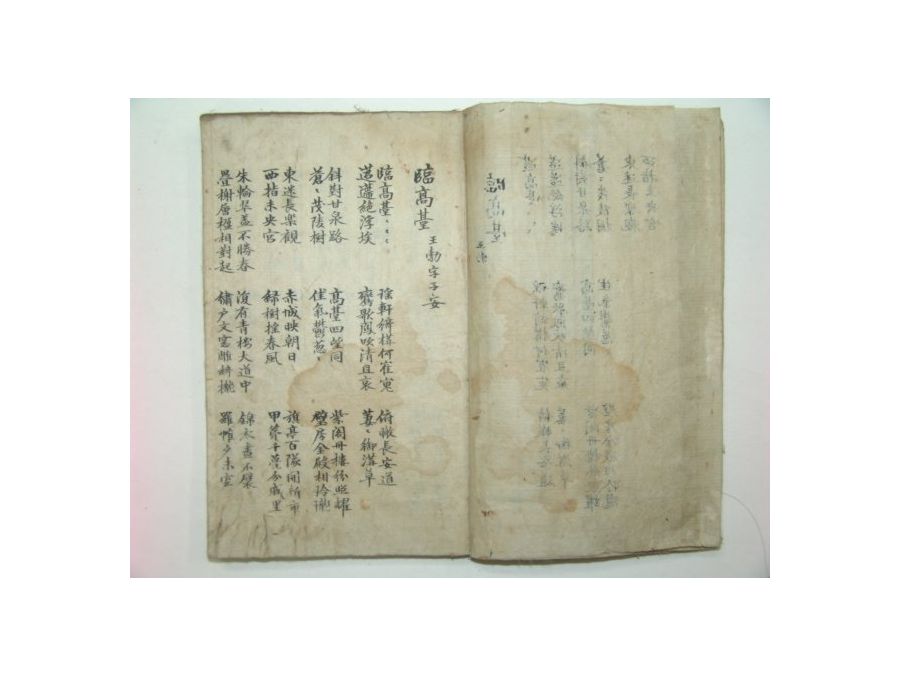 臨高臺
王勃字子安
臨高臺ヽヽ
迢遰絕浮埃
瑤軒綺構何崔嵬
鸞歌鳳吹清且哀
俯瞰長安道
萋ヽ御溝草
斜對甘泉路
蒼ヽ茂陵樹
高臺四望同
佳氣鬱葱ヽ
紫閣丹樓紛照耀
璧房金殿相玲瓏
東迷長樂觀
西指未央宮
赤城映朝日
綠樹搖春風
旗亭百隊開新市
甲第千甍分戚里
朱輪翠盖不勝春
疊榭層楹相對起
復有青樓大道中
繡戶文窓雕綺櫳
錦衣晝不襞
羅帷夕未空